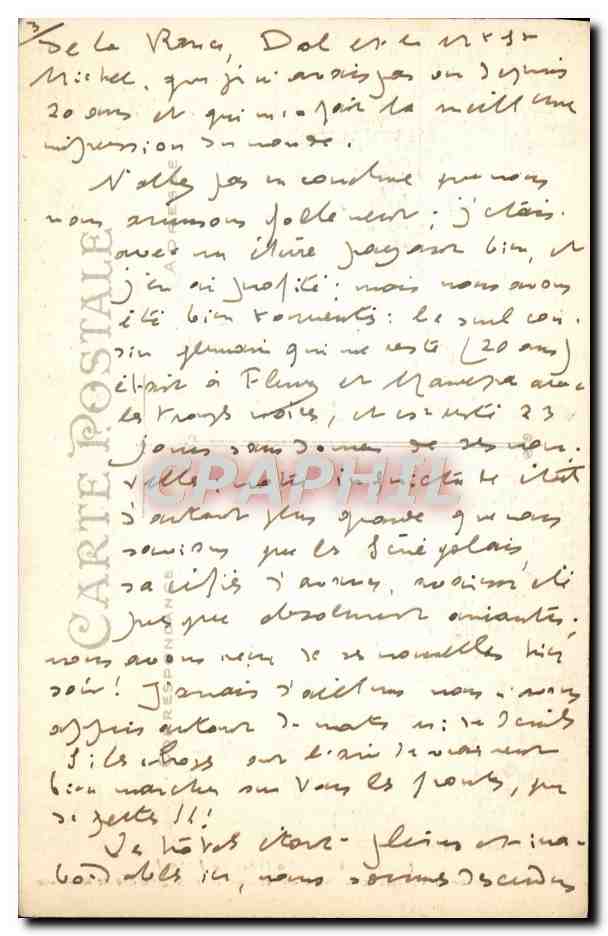 3/
de la Rance, Dol et le Mt St
Michel, que je n'avais pas vu depuis
20 ans et qui m'a fait la meilleure
impression du monde.
N'allez pas en conclure que nous
nous amusons follement ; j'étais
avec un élève payant bien, et
j'en ai profité ; mais nous avons
été bien tourmentés : le seul cou-
sin germain qui me reste (20 ans)
était à Fleury et avec
les troupes noires, et est resté 23
jours sans donner de ses nou-
velles, notre inquiétude était
d'autant plus grande que nous
savions que les Sénégalais,
sacrifiés d'avance, avaient été
presque absolument anéantis ;
nous avons reçu de ses nouvelles hier
soir ! Jamais d'ailleurs nous n'avons
appris autant de morts ni de deuils
Si les choses ont l'air de vraiment
bien marcher sur tous les fronts, que
de pertes !!!
Les hôtels étant pleins et ina-
bordables ici, nous sommes descendus
CARTE POSTALE
ADRESSE
CORRESPONDANCE
CPAPHIL